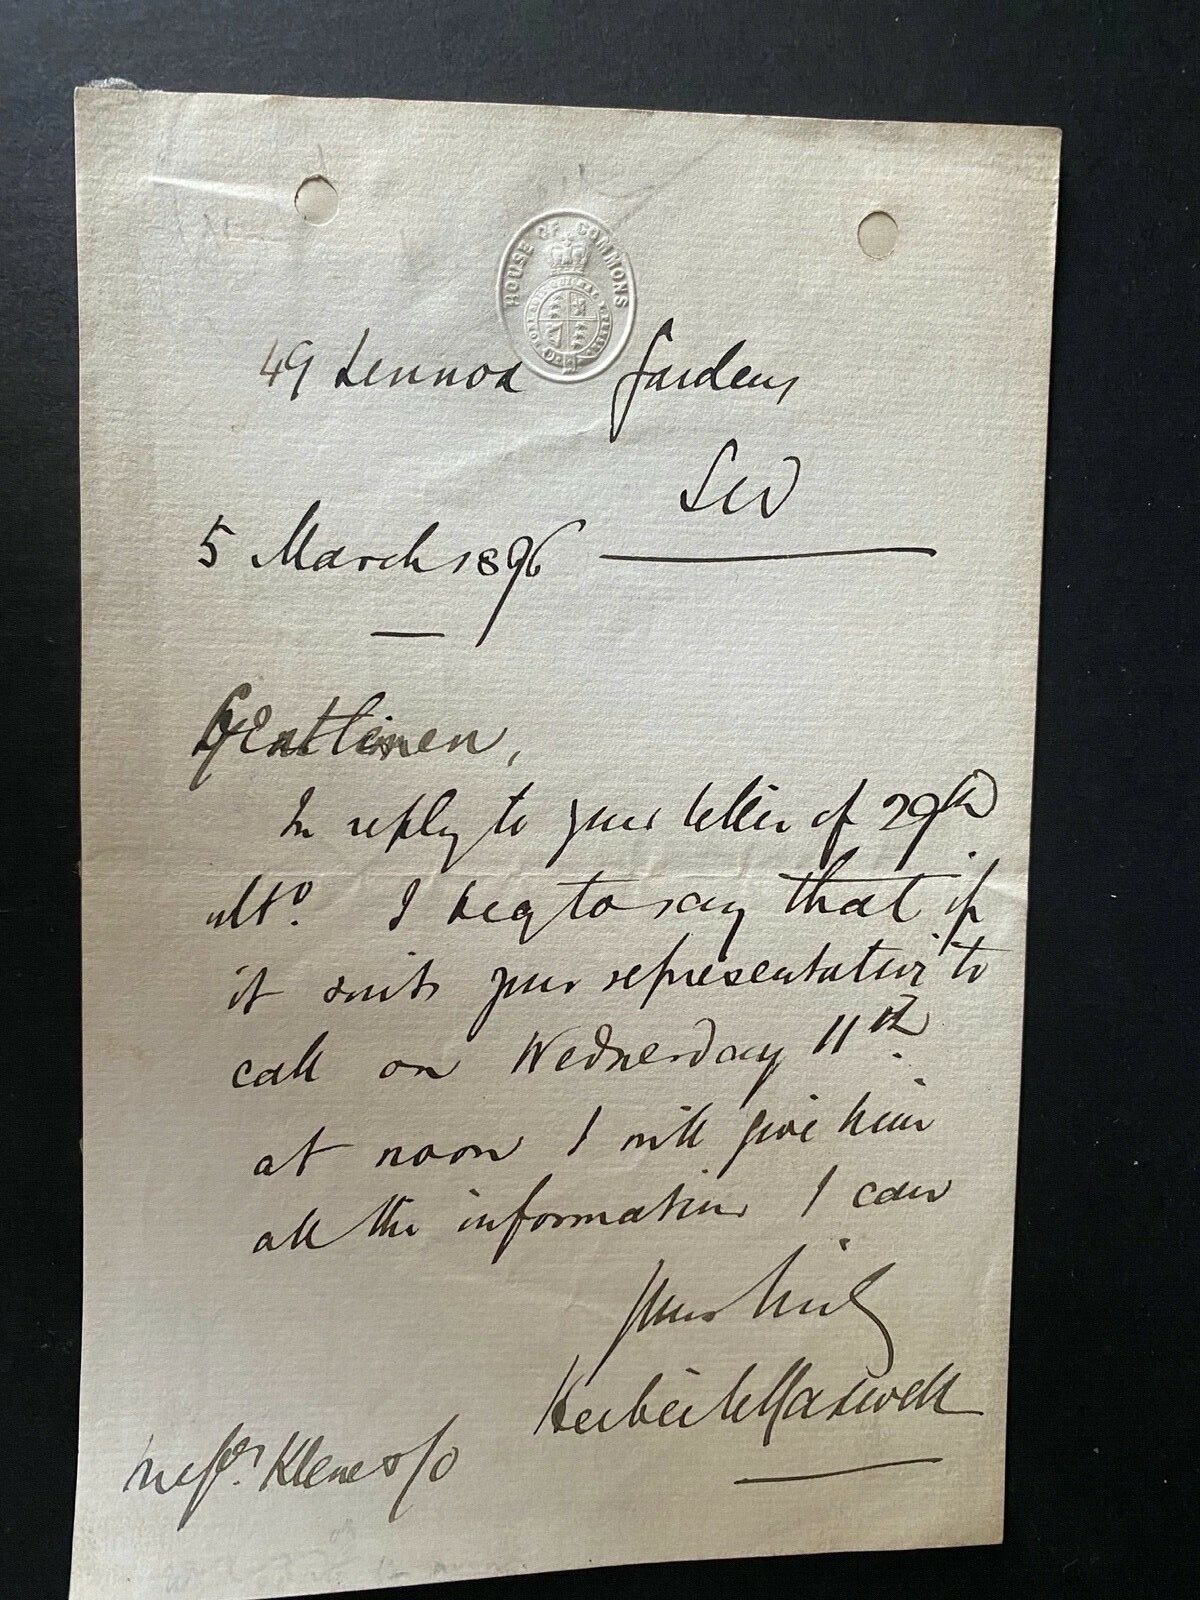 HOUSE OF COMMONS
49 Lennox Gardens
SW
5 March 1896
Gentlemen,
In reply to your letter of 29th
ulto. I beg to say that if
it suits your representative to
call on Wednesday 11th
at noon I will give him
all the information I can
Yours truly
Herbert Maxwell
Messrs. Klene & Co